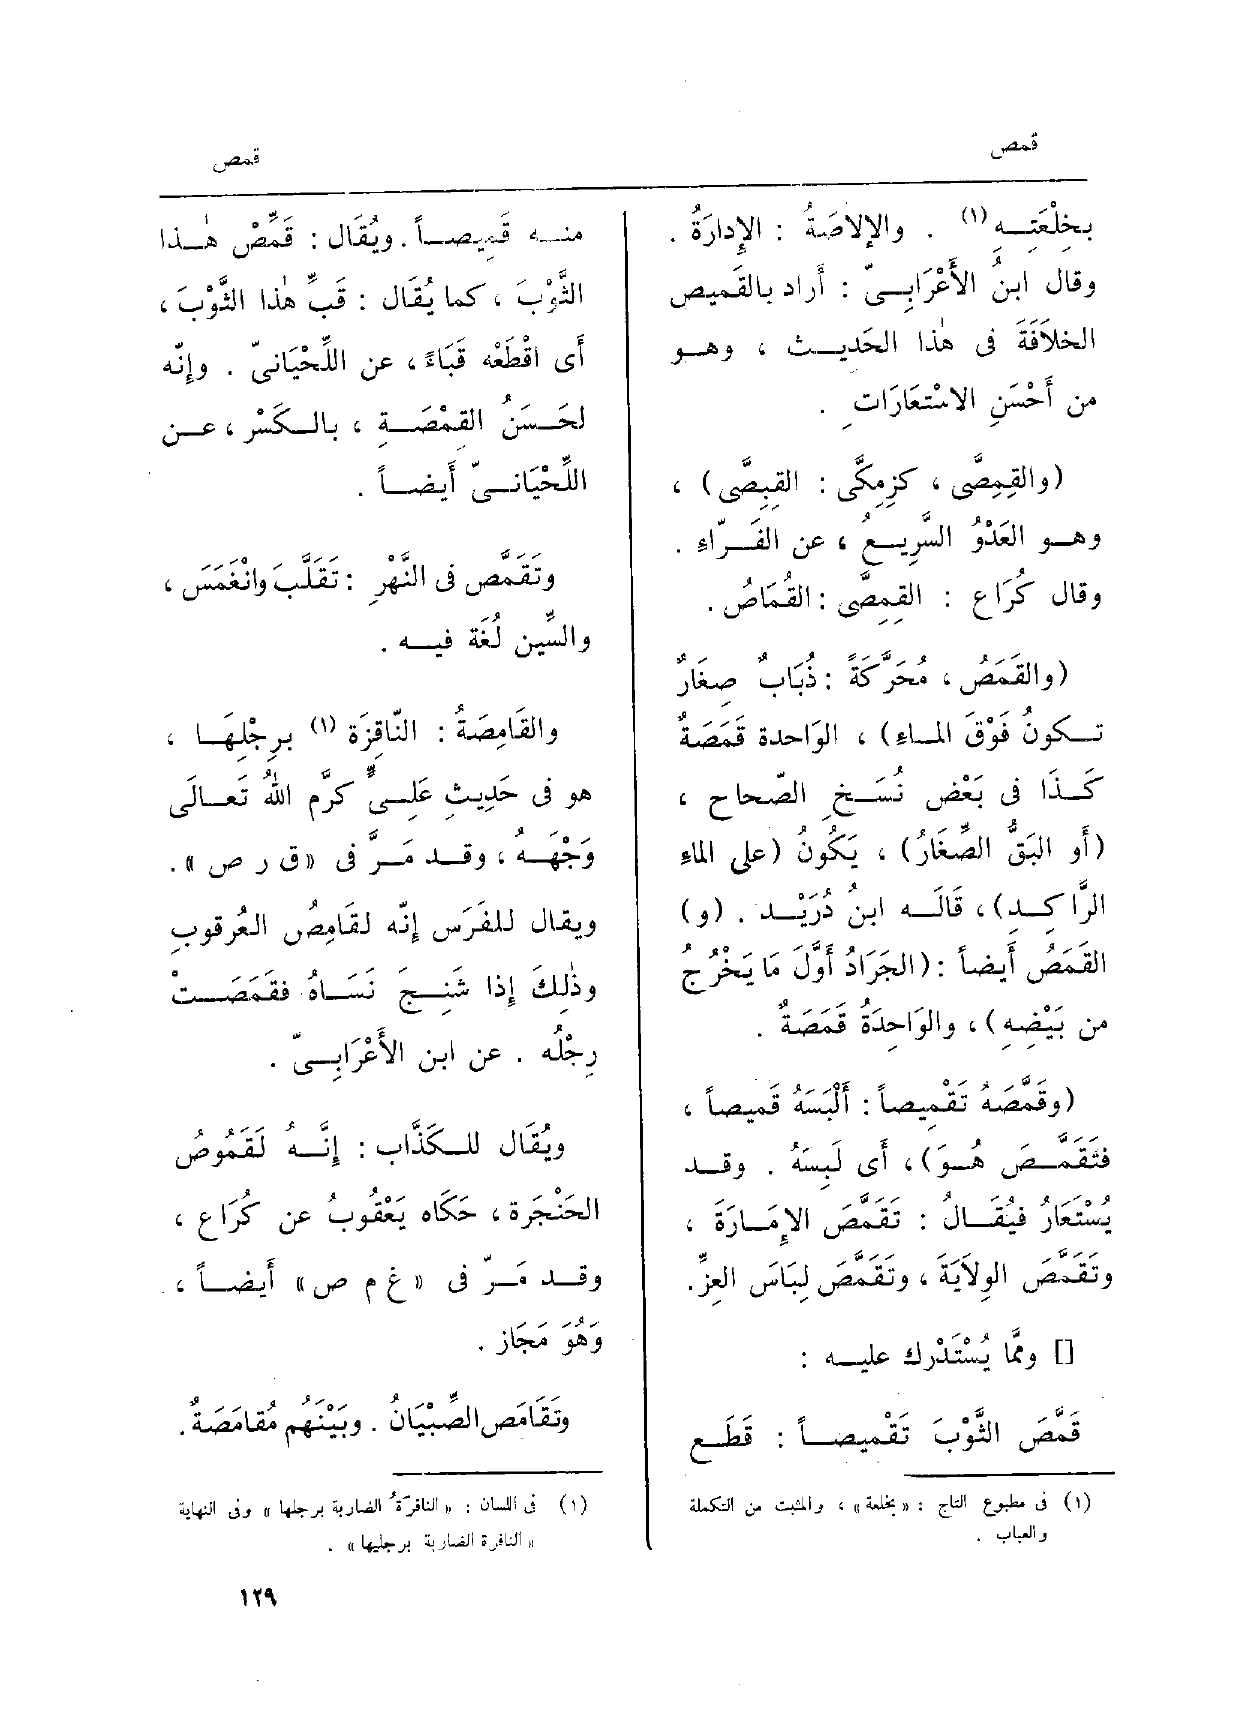 قمص
قمص
بِخِلْعَتِـهِ (١) . والإِلاصَةُ : الإِدارَةُ .
وقال ابنُ الأَعْرَابِـىّ : أَراد بالقَمِيص
الخلاَفَةَ فى هٰذا الحَدِيـث ، وهـو
من أَحْسَنِ الاسْتِعَارَاتِ .
(والقِمِصَّى ، كزِمِكَّى : القِبِصَّى) ،
وهـو العَدْوُ السَّرِيـعُ ، عن الفَـرّاءِ .
وقال كُرَاع : القِمِصَّى : القُمَاصُ .
(والقَمَصُ ، مُحَرَّكَةً : ذُبَابٌ صِغَارٌ
تـكونُ فَوْقَ المـاءِ) ، الوَاحدة قَمَصَةٌ
كَـذَا فى بَعْضِ نُسَـخِ الصّحاح ،
(أَو البَقُّ الصِّغَارُ) ، يَكُونُ (على الماءِ
الرَّاكِـدِ) ، قَالَـه ابنُ دُرَيْـد . (و)
القَمَصُ أَيضاً : (الجَرَادُ أَوَّلَ مَا يَخْرُجُ
من بَيْضِهِ) ، والوَاحِدَةُ قَمَصَةٌ .
(وقَمَّصَهُ تَقْمِيصاً : أَلْبَسَهُ قَمِيصاً ،
فتَقَمَّـصَ هُـوَ) ، أَى لَبِسَهُ . وقـد
يُسْتَعَارُ فيُقَـالُ : تَقَمَّصَ الإِمَـارَةَ ،
وتَقَمَّصَ الوِلاَيَةَ ، وتَقَمَّصَ لِبَاسَ العِزِّ.
[] وممَّا يُسْتَدْرك عليـه :
قَمَّصَ الثَّوْبَ تَقْمِيصـاً : قَطَـع
(١) فى مطبوع التاج : « بخلعة » ، والمثبت من التكملة
والعباب .
منـه قَمِيصـاً . ويُقَال : قَمِّصْ هٰـذا
الثَّوْبَ ، كما يُقَال : قَبِّ هٰذا الثَّوْبَ ،
أَى اقْطَعْه قَبَاءً ، عن اللِّحْيَانىّ . وإِنّه
لحَـسَنُ القِمْصَـةِ ، بالـكَسْرِ ، عـن
اللِّحْيَانـىّ أَيضـاً .
وتَقَمَّصَ فى النَّهْرِ : تَقَلَّبَ وانْغَمَسَ ،
والسِّين لُغَة فيـه .
والقَامِصَةُ : النّاقِزَة (١) بِرِجْلِهَـا ،
هو فى حَدِيثِ عَلِـىٍّ كرَّم اللهُ تَعـالَى
وَجْهَـهُ ، وقـد مَـرَّ فى « ق ر ص » .
ويقال للفَرَس إِنّه لقَامِصُ العُرْقوبِ
وذٰلِكَ إِذا شَنِـجَ نَسَـاهُ فقَمَصَـتْ
رِجْلُه . عن ابن الأَعْرَابِـىّ .
ويُقَال للـكَذَّاب : إِنَّـهُ لَقَمُوصُ
الحَنْجَرة ، حَكَاه يَعْقُوبُ عن كُرَاع ،
وقـد مَـرّ فى « غ م ص » أَيضـاً ،
وَهُوَ مَجَاز .
وتَقَامَصَ الصِّبْيَانُ . وبَيْنَهُم مُقَامَصَةٌ.
(١) فى اللسان : « النافرَة الضاربة برجلها » وفى النهاية
« النافرة الضاربة برجليها » .
١٢٩